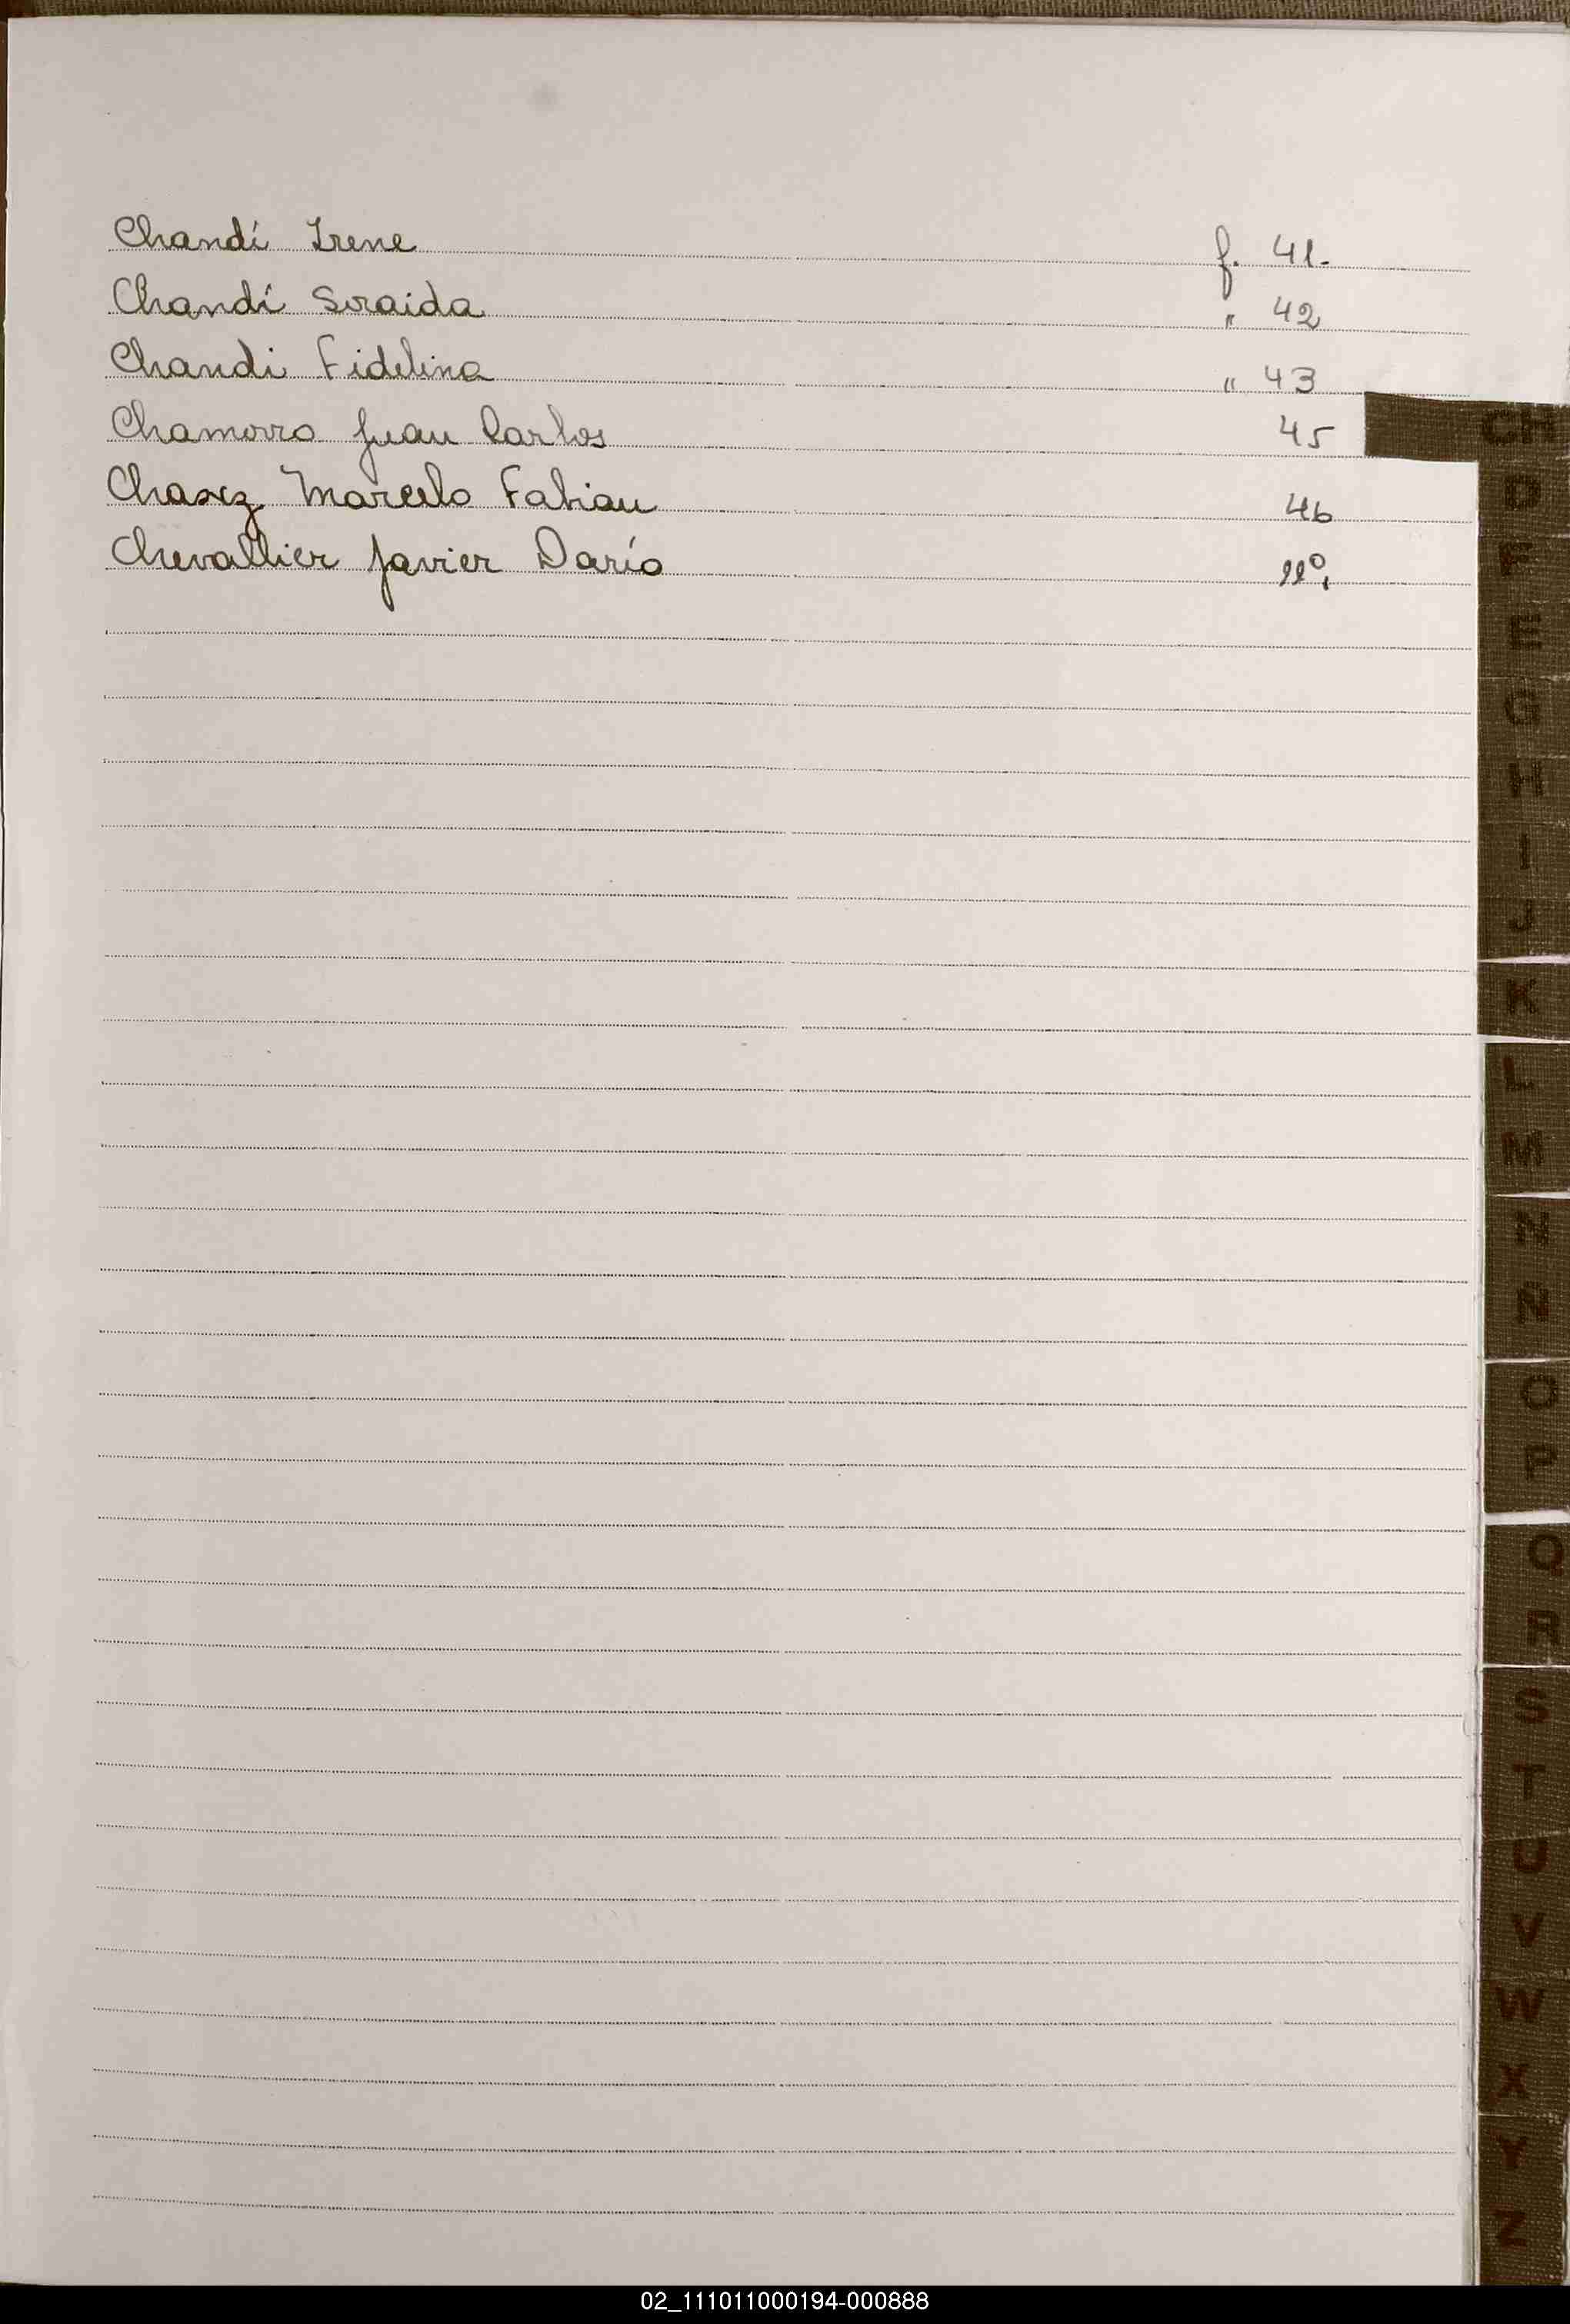 Chandí Irene f. 41.
Chandí Soraida " 42
Chandi Fidelina " 43
Chamorro Juan Carlos 45
CH
Chavez Marcelo Fabian 46
D
Chevallier Javier Darío
F
E
G
H
I
J
K
L
M
N
Ñ
O
P
Q
R
S
T
U
V
W
X
Y
Z
02_111011000194-000888